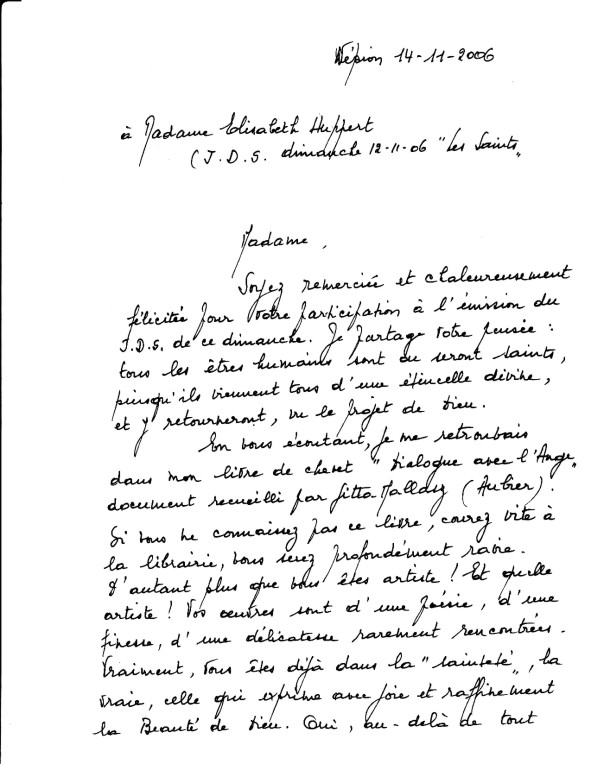 Wépion 14-11-2006
à Madame Elisabeth Huppert
(J.D.S. dimanche 12-11-06 "Les Saints"
Madame,
Soyez remerciée et chaleureusement
félicitée pour votre participation à l'émission du
J.D.S. de ce dimanche. Je partage votre pensée :
tous les êtres humains sont ou seront saints,
puisqu'ils viennent tous d'une étincelle divine,
et y retourneront, vu le projet de Dieu.
En vous écoutant, je me retrouvais
dans mon livre de chevet "Dialogue avec l'Ange"
document recueilli par Gitta Mallasz (Aubier).
Si vous ne connaissez pas ce livre, courez vite à
la librairie, vous serez profondément ravie.
D'autant plus que vous êtes artiste ! Et quelle
artiste ! Vos œuvres sont d'une poésie, d'une
finesse, d'une délicatesse rarement rencontrées.
Vraiment, vous êtes déjà dans la "sainteté", la
vraie, celle qui exprime avec joie et raffinement
la Beauté de Dieu. Oui, au-delà de tout